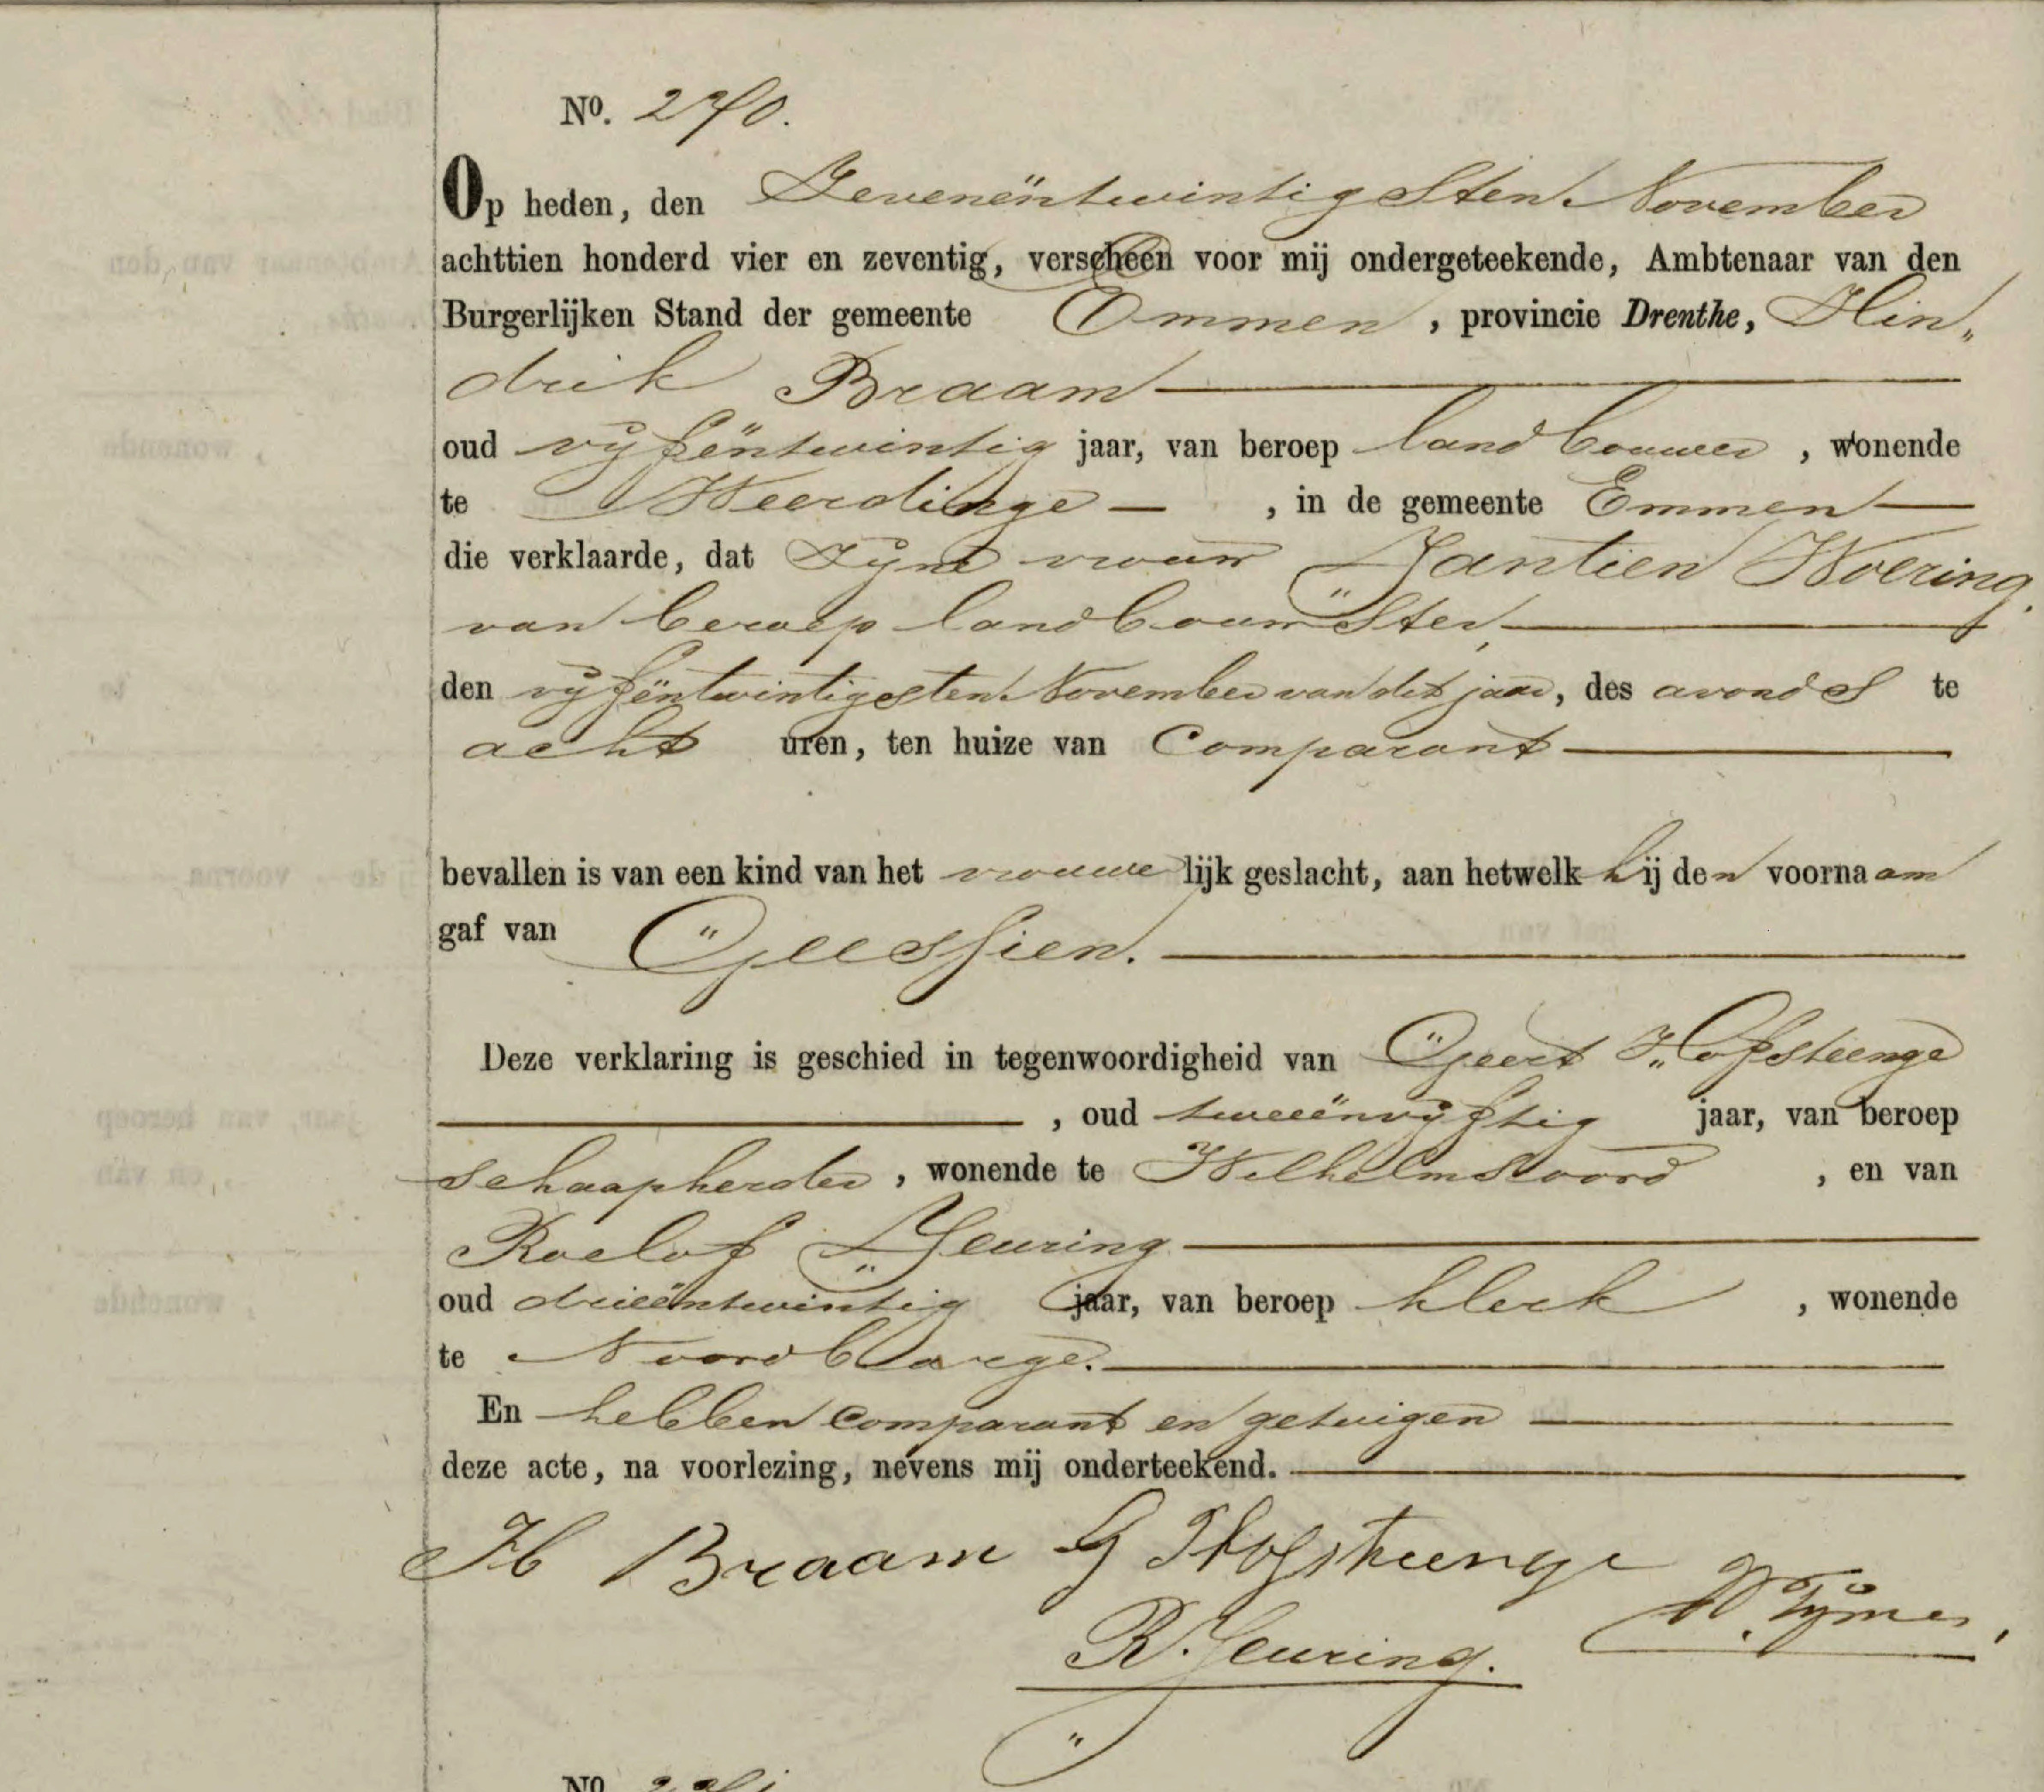 No. 270.
Op heden, den Zevenëntwintigsten November
achttien honderd vier en zeventig, verscheen voor mij ondergeteekende, Ambtenaar van den
Burgerlijken Stand der gemeente Emmen, provincie Drenthe, Hin„
drik Braam
oud vijfëntwintig jaar, van beroep landbouwer, wonende
te Weerdinge, in de gemeente Emmen
die verklaarde, dat zijne vrouw Jantien Woering
van beroep landbouwster,
den vijfëntwintigsten November van dit jaar, des avonds te
acht uren, ten huize van Comparant
bevallen is van een kind van het vrouwelijk geslacht, aan hetwelk hij den voornaam
gaf van Geessien.
Deze verklaring is geschied in tegenwoordigheid van Geert Hofsteenge
, oud tweeënvijftig jaar, van beroep
schaapherder, wonende te Wilhelmsoord, en van
Roelof Jeuring
oud drieëntwintig jaar, van beroep klerk, wonende
te Noordbarge.
En hebben comparant en getuigen
deze acte, na voorlezing, nevens mij onderteekend.
H Braam G Hofsteenge
R. Jeuring.
No